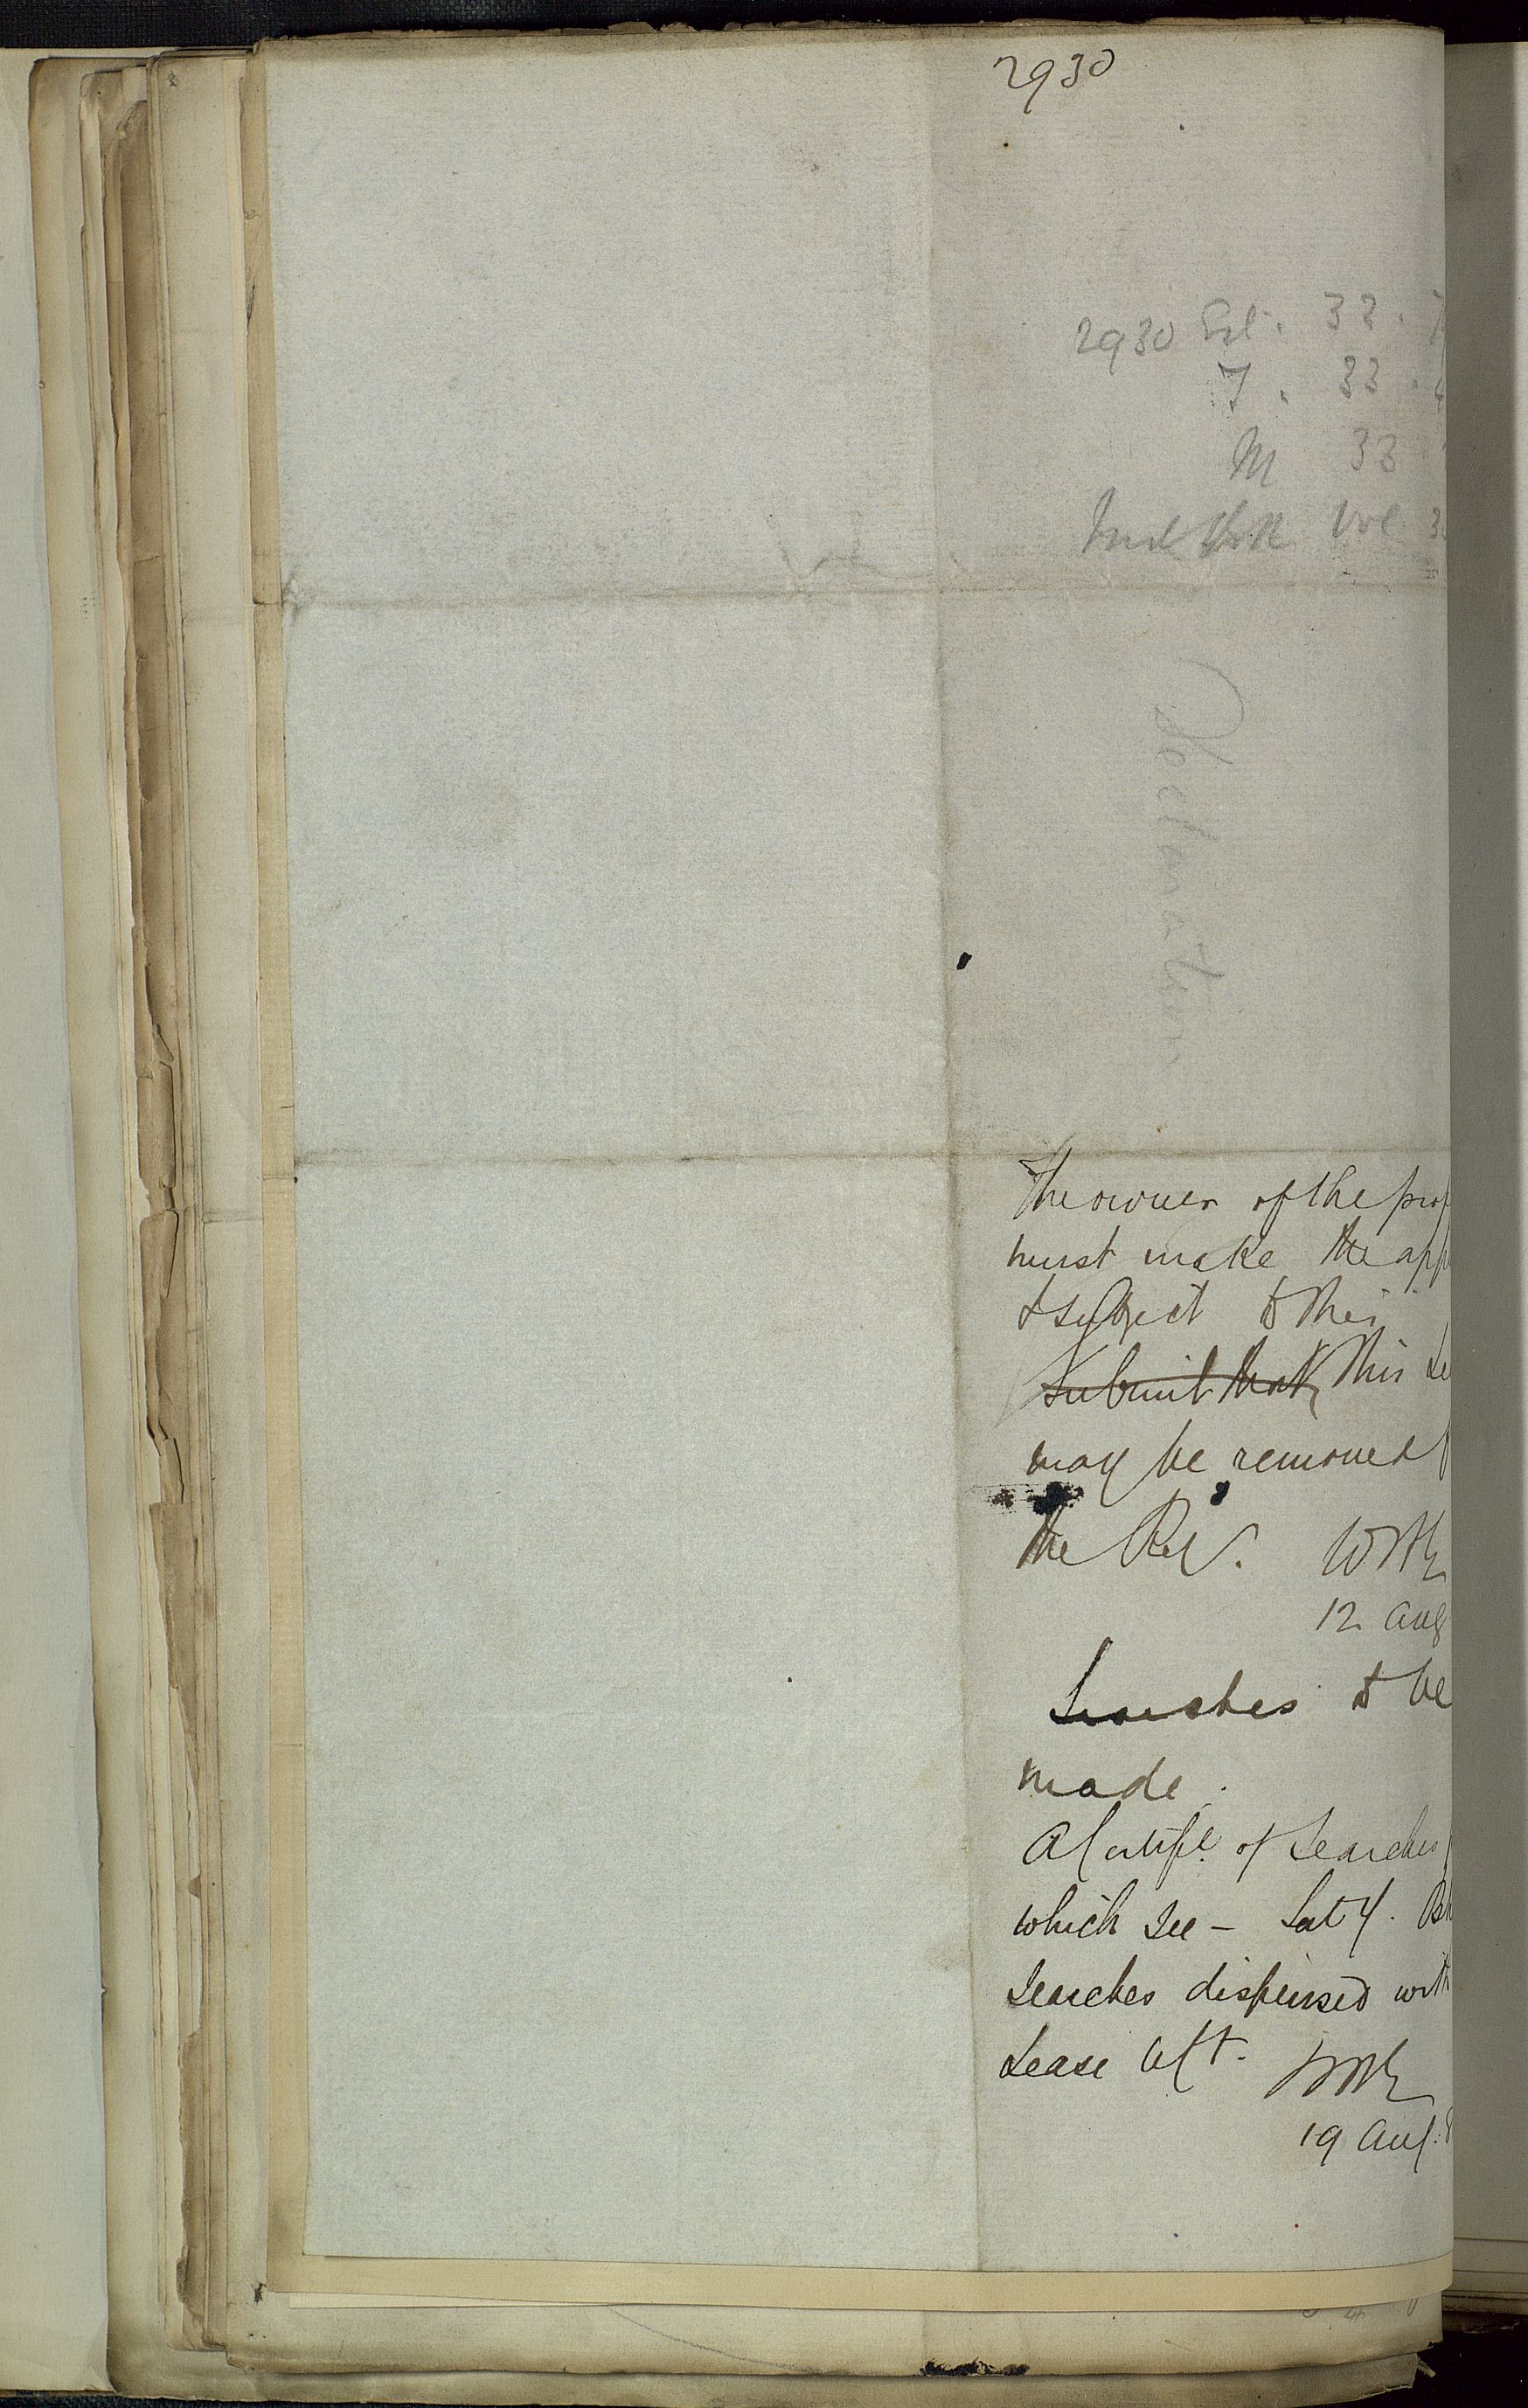 2930
2930 Est. 33.
F. 33.
M 33
Ind Vol 3
Declaration
The owner of the prop
must make the app
& subject to this
Submit that this
may be removed
the
12 Aug
Searches to be
made.
A Certife. of Searches
which see – Satfy.
Searches dispensed with
Lease
19 Aug.